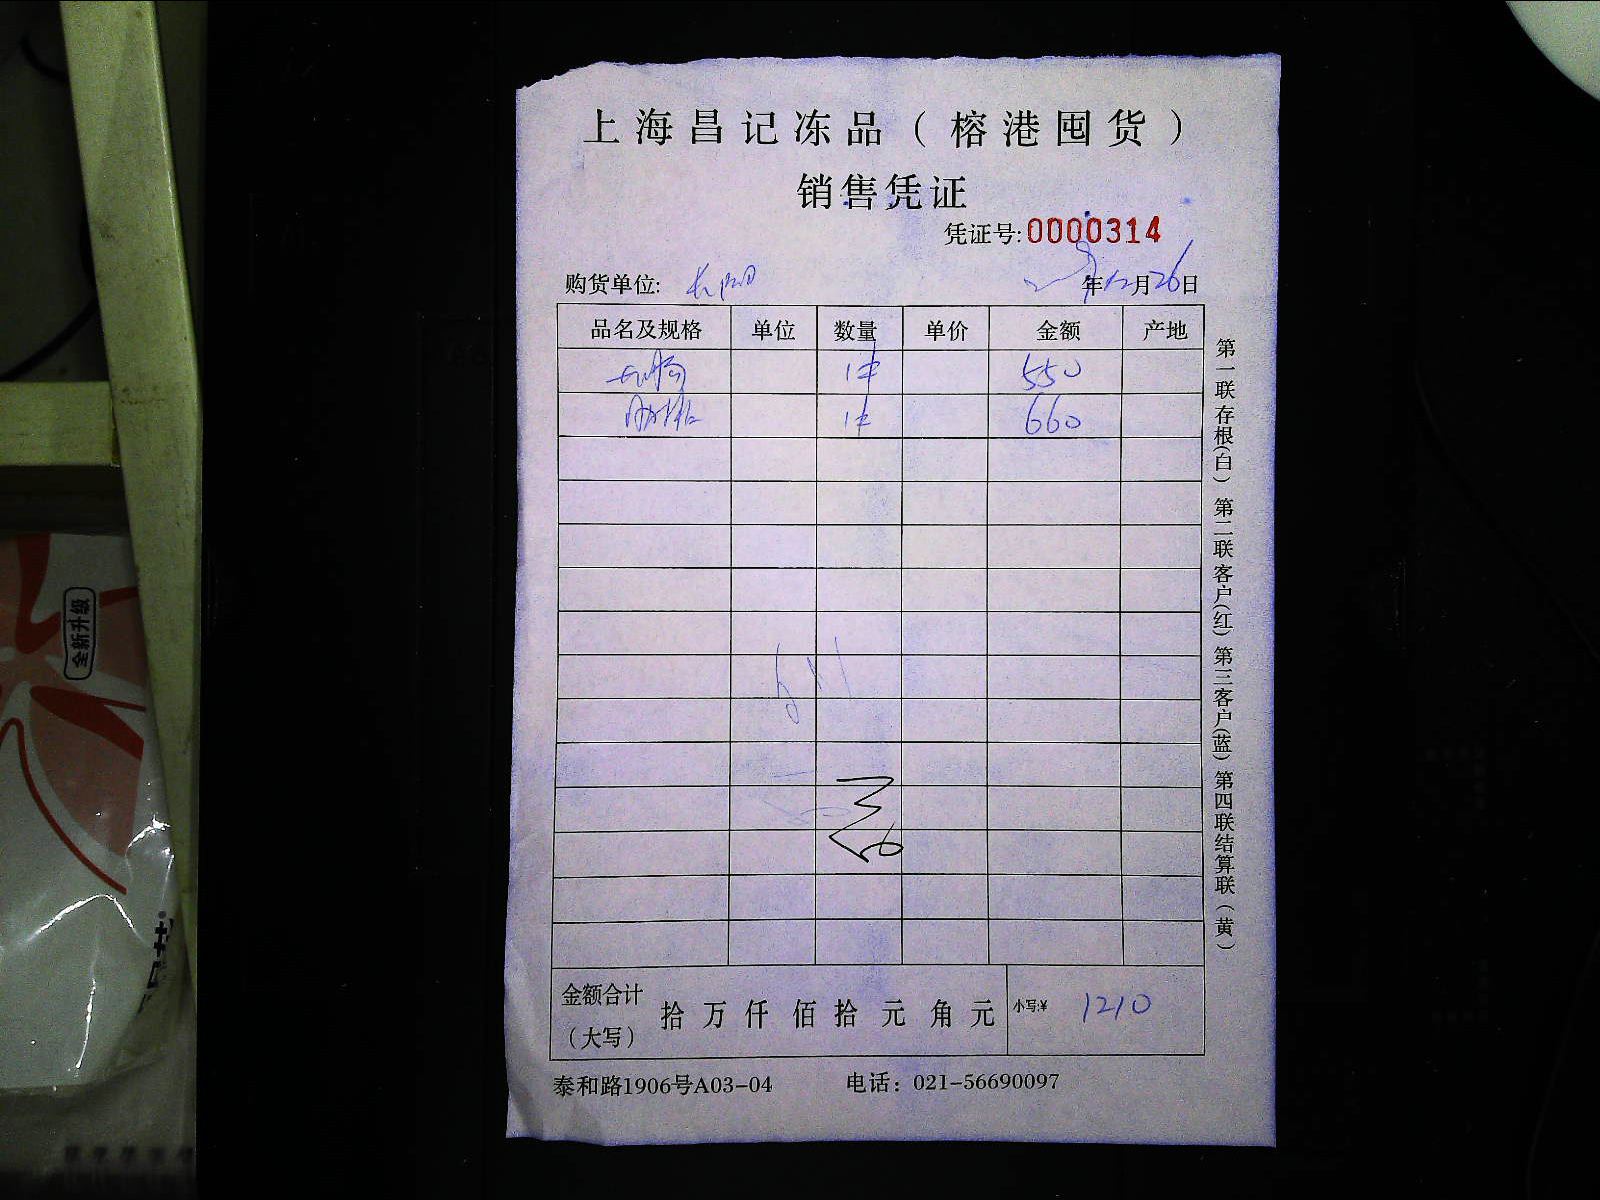 上海昌记冻品（榕港囤货）
销售凭证
凭证号:0000314
购货单位:
年12月26日
品名及规格 单位 数量 单价 金额 产地
1件 550
1件 660
金额合计（大写） 拾万仟佰拾元角元 小写:¥ 1210
泰和路1906号A03-04 电话：021-56690097
第一联存根(白) 第二联客户(红) 第三客户(蓝) 第四联结算联(黄)
全新升级